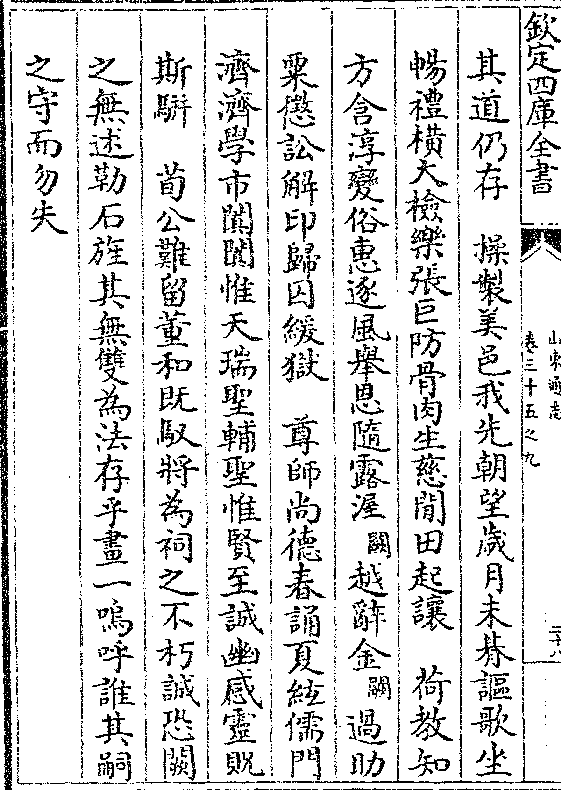 欽定四庫全書
山東通志
卷三十五之九
其道仍存　操製美邑我先朝望歲月未朞謳歌坐
暢禮橫大檢樂張巨防骨肉生慈閒田起讓　荷教知
方含淳變俗惠逐風舉恩隨露渥闕越辭金闕過助
粟懲訟解印歸囚緩獄　尊師尚德春誦夏絃儒門
濟濟學市闐闐惟天瑞聖輔聖惟賢至誠幽感靈貺
斯駢　荀公難留董和既馭將為祠之不朽誠恐闕
之無述勒石旌其無雙為法存乎畫一嗚呼誰其嗣
之守而勿失